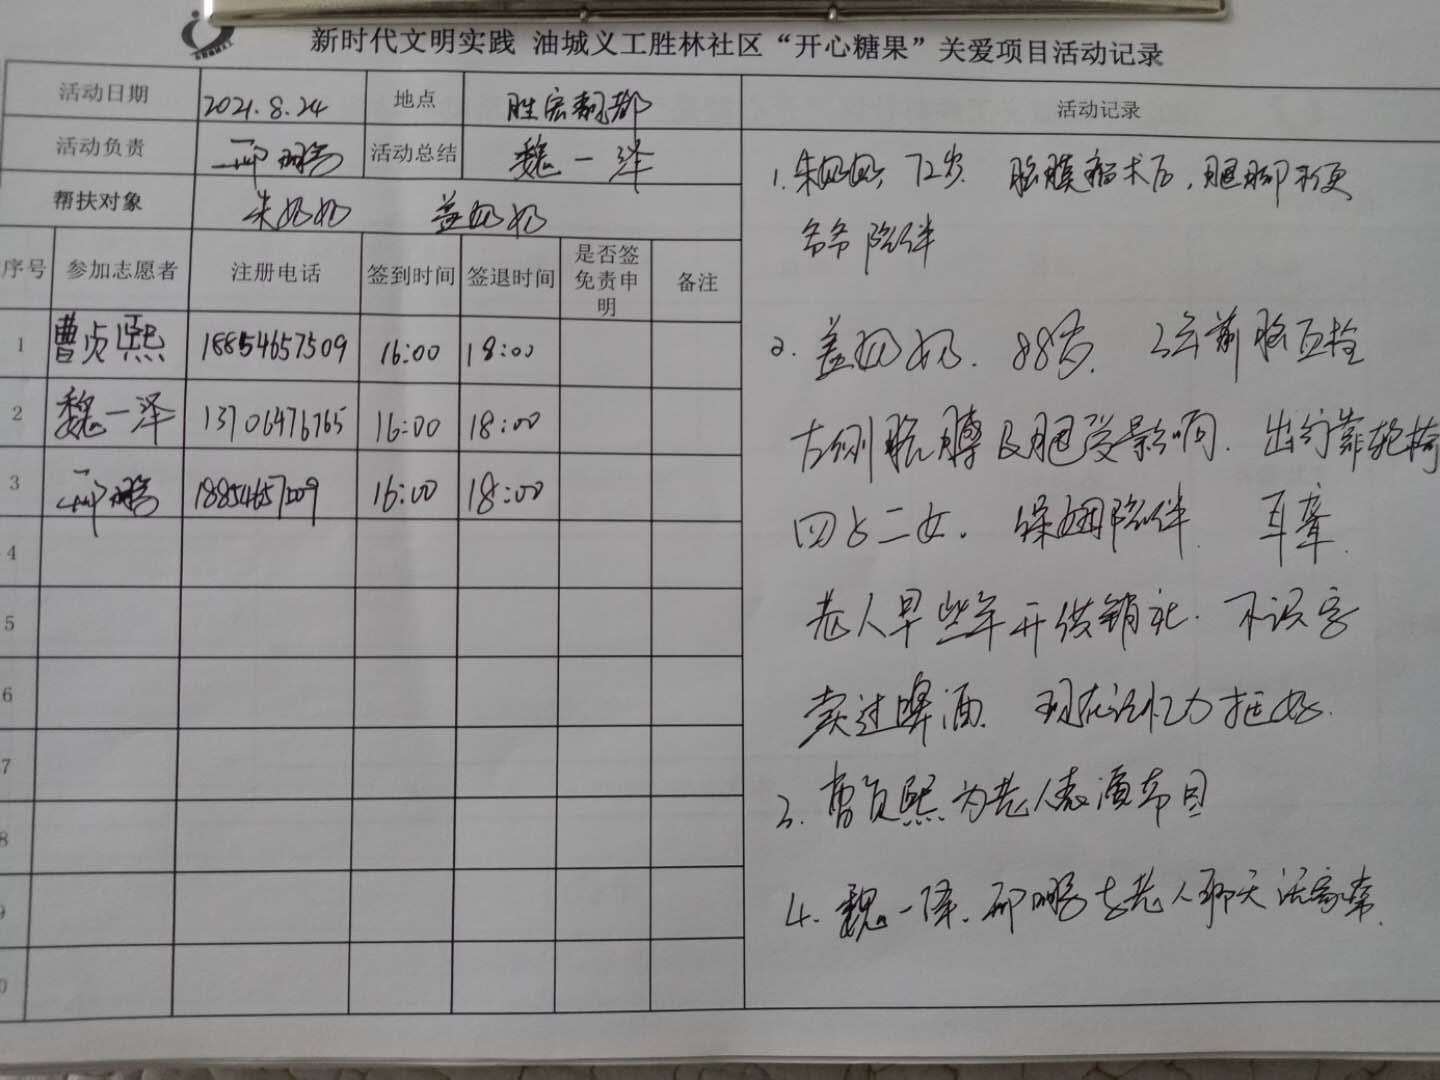 新时代文明实践 油城义工胜林社区“开心糖果”关爱项目活动记录
活动日期 2021.8.24 地点 胜宏
活动记录
活动负责 邴鹏 活动总结 魏一泽
帮扶对象 朱奶奶 盖奶奶
序号 参加志愿者 注册电话 签到时间 签退时间 是否签免责申明 备注
1 曹贞熙 18854657509 16:00 18:00
2 魏一泽 13706476765 16:00 18:00
3 邴鹏 16:00 18:00
4
5
6
7
8
9
0
1. 朱奶奶 72岁 脑膜瘤术后,腿脚不便
爷爷陪伴
2. 盖奶奶. 88岁. 2年前脑血栓
左侧胳膊及腿受影响. 出行靠轮椅
四子二女. 保姆陪伴. 耳聋.
老人早些年开供销社. 不识字
卖过啤酒. 现在记忆力挺好.
3. 曹贞熙为老人表演节目
4. 魏一泽、邴鹏与老人聊天话家常.